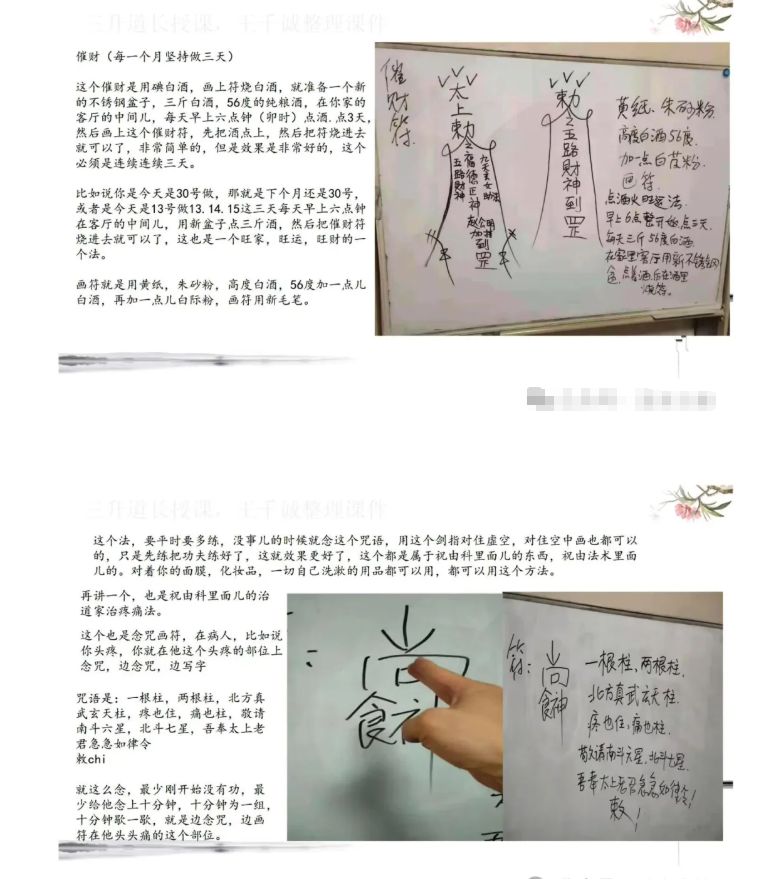 三升道长授课，王千诚整理课件
催财（每一个月坚持做三天）
这个催财是用碘白酒，画上符烧白酒，就准备一个新
的不锈钢盆子，三斤白酒，56度的纯粮酒，在你家的
客厅的中间儿，每天早上六点钟（卯时）点酒.点3天，
然后画上这个催财符，先把酒点上，然后把符烧进去
就可以了，非常简单的，但是效果是非常好的，这个
必须是连续连续三天。
比如说你是今天是30号做，那就是下个月还是30号，
或者是今天是13号做13.14.15这三天每天早上六点钟
在客厅的中间儿，用新盆子点三斤酒，然后把催财符
烧进去就可以了，这也是一个旺家，旺运，旺财的一
个法。
画符就是用黄纸，朱砂粉，高度白酒，56度加一点儿
白酒，再加一点儿白际粉，画符用新毛笔。
催财符
太上敕
五路财神
之富德正神
九天玄女助法
到罡
敕之五路財神到罡
黄纸、朱砂粉
高度白酒56度
加一点白芨粉
画符
点酒火旺运法
早上6点整开始点三天
每天三斤56度白酒
在家里客厅用新不锈钢
盆点着酒后在酒里
烧符。
三升道长授课，王千诚整理课件
这个法，要平时要多练，没事儿的时候就念这个咒语，用这个剑指对住虚空，对住空中画也都可以
的，只是先练把功夫练好了，这就效果更好了，这个都是属于祝由科里面儿的东西，祝由法术里面
儿的。对着你的面膜，化妆品，一切自己洗漱的用品都可以用，都可以用这个方法。
再讲一个，也是祝由科里面儿的治
道家治疼痛法。
这个也是念咒画符，在病人，比如说
你头疼，你就在他这个头疼的部位上
念咒，边念咒，边写字
咒语是：一根柱，两根柱，北方真
武玄天柱，疼也住，痛也柱，敬请
南斗六星，北斗七星，吾奉太上老
君急急如律令
敕chi
就这么念，最少刚开始没有功，最
少给他念上十分钟，十分钟为一组，
十分钟歇一歇，就是边念咒，边画
符在他头头痛的这个部位。
尚
食神
符：
尚
食神
一根柱，两根柱，
北方真武玄天柱
疼也住，痛也柱，
敬请南斗六星、北斗七星
吾奉太上老君急急如律令！
敕！